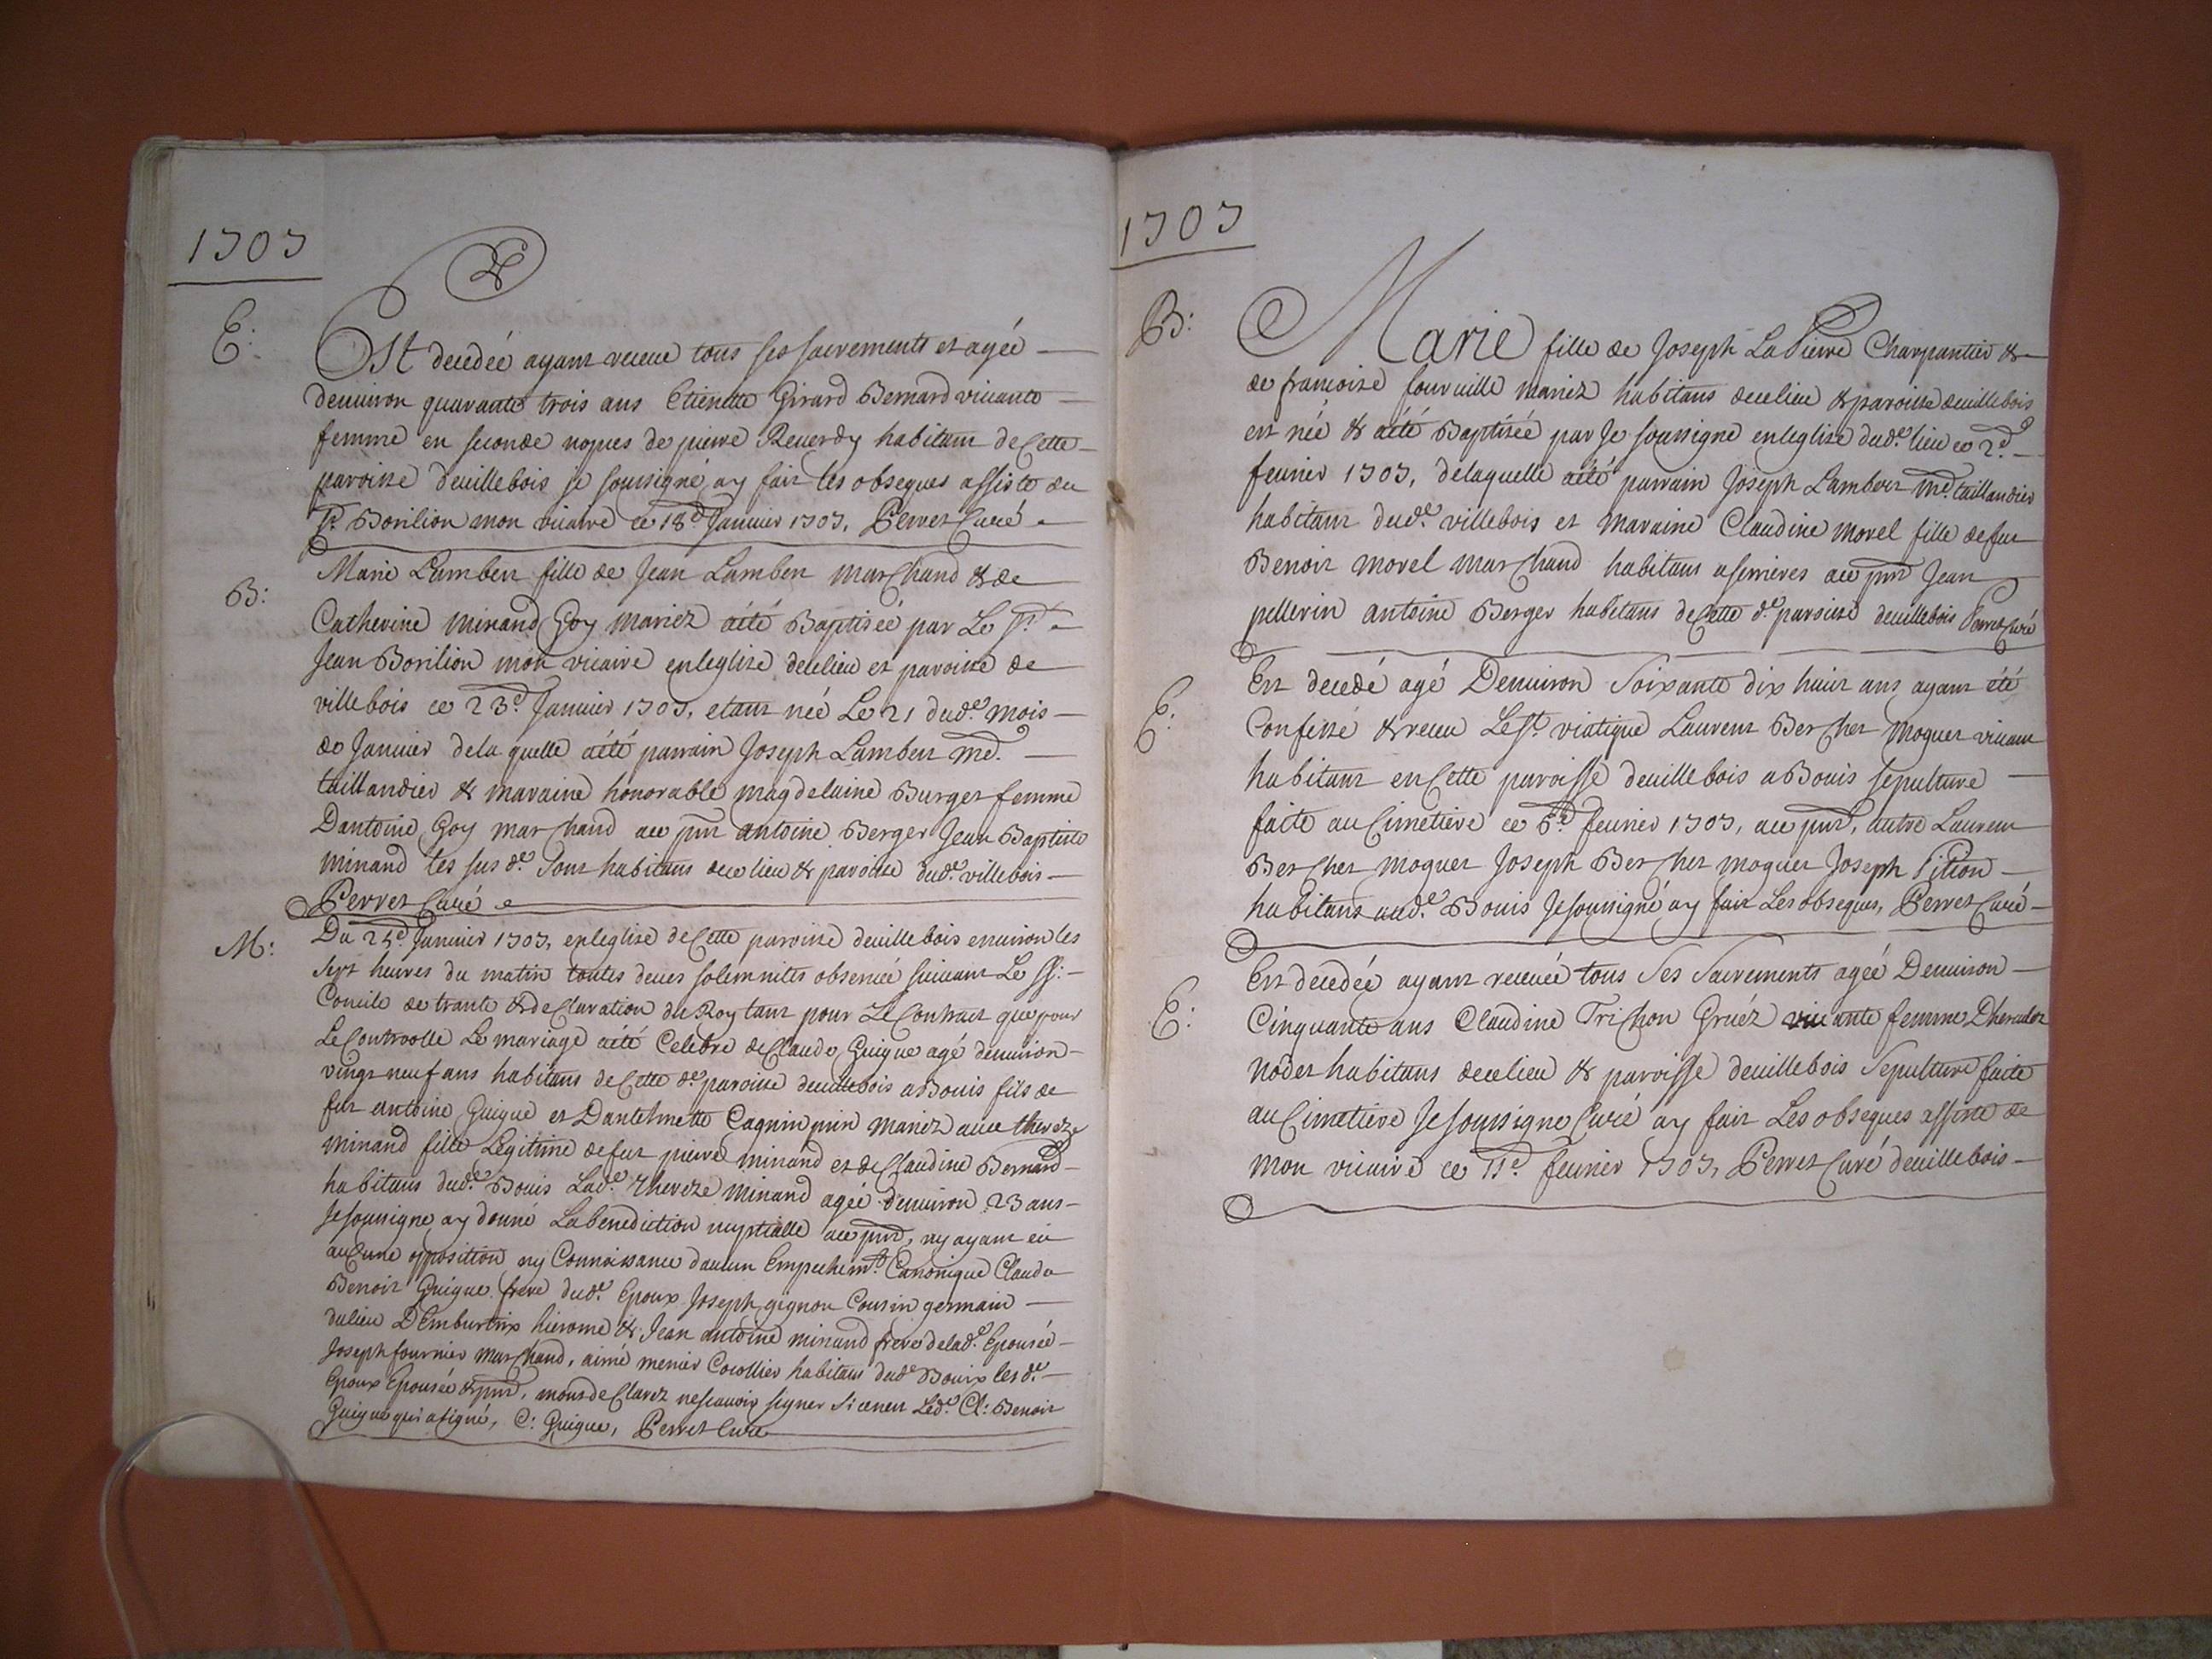 1707
E:
Est decedée ayant receue tous ses sacrements et agée
denuiron quarante trois ans Etienette Girard Bernard viuante
femme en seconde nopces de pierre Reuerdy habitant de Cette
paroisse deuillebois je soussigné ay fait les obseques assisté du
Sr. Borilion mon vicaire ce 18e. Januier 1707, Perret Curé
B:
Marie Lambert fille de Jean Lambert marchand & de
Catherine minand Goy mariez aété Baptisée par Le Sr.
Jean Borilion mon vicaire enleglise decelieu et paroisse de
villebois ce 23e. Januier 1707, etant née Le 21 dude. mois
de Januier dela quelle aété parrain Joseph Lambert md.
taillandier & maraine honorable magdelaine Burget femme
Dantoine Goy marchand aue pnt antoine Berger Jean Baptiste
minand les sus de. Sont habitans dece lieu & paroisse dude. villebois
Perret Curé
M:
Du 25e. Januier 1707, enleglise de Cette paroisse deuillebois enuiron les
sept heures du matin toutes deues solemnites obseruée suiuant Le St:
Concile de trante & deClaration du Roy tant pour Le Contract que pour
Le Controolle Le mariage aété Celebre de Claude Guigue agé denuiron
vingt neuf ans habitans de Cette de. paroisse deuillebois a Bouis fils de
fut antoine Guigue et Dantelmette Cagnin pin mariez auec thereze
minand fille Legitime defut pierre minand et de Claudine Bernard
habitans dude. Bouis Lade. thereze minand agée denuiron 23 ans
Je soussigne ay donné La benediction nuptialle aue pnt, ny ayant eu
auCune opposition ny Connaissance daucun Empechemt. Canonique Claude
Benoit Guigue frere dude. Epoux Joseph gignon Cousin germain
dulieu DEmburtrix hierome & Jean antoine minand frere delade. Epousée
Joseph fournier marchand, aimé menier Corollier habitans dude Bouix les de.
Epoux Epousée & pnt, mont deClarez nescauoir signer Si cenest Lede. Cl: Benoit
Guigue qui asigné, C: Guigue, Perret Curé
1707
B:
Marie fille de Joseph La Pierre Charpantier &
de francoise fouruille mariez habitans decelieu & paroisse deuillebois
est née & aété Baptisée par Je soussigné enleglise dude. lieu ce 2e.
feurier 1707, delaquelle aété parrain Joseph Lambert md. taillandier
habitant dude. villebois et maraine Claudine morel fille de fut
Benoit morel marchand habitans aserrieres aue pnt Jean
pellerin antoine Berger habitans de Cette de. paroisse deuillebois Perret Curé
E:
Est decedé agé Denuiron Soixante dix huit ans ayant été
Confessé & receu Le St. viatique Laurent Bercher moquet viuant
habitant en Cette paroisse deuillebois a Bouis sepulture
faite au Cimetiere ce 6e. feurier 1707, aue pnt, autre Laurent
Bercher moquet Joseph Bercher moquet Joseph Pition
habitans aude. Bouis Je soussigné ay fait Les obseques, Perret Curé
E:
Est decedée ayant receuée tous Ses Sacrements agée Denuiron
Cinquante ans Claudine Trichon Gruéz viuante femme Dhercules
nodet habitans decelieu & paroisse deuillebois Sepulture faite
au Cimetiere Je soussigne Curé ay fait Les obseques assisté de
mon vicaire ce 11e. feurier 1707, Perret Curé deuillebois